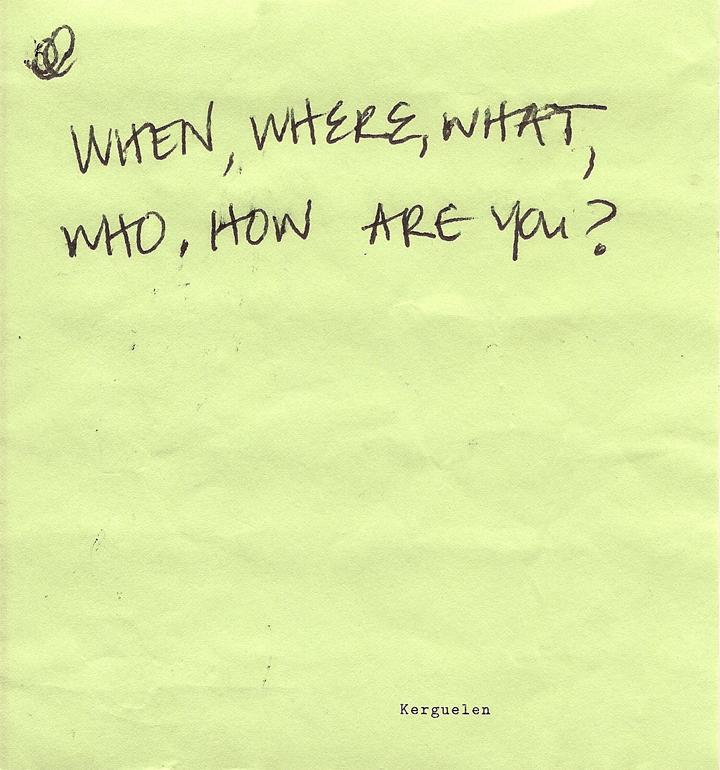 WHEN, WHERE, WHAT,
WHO, HOW ARE YOU?
Kerguelen